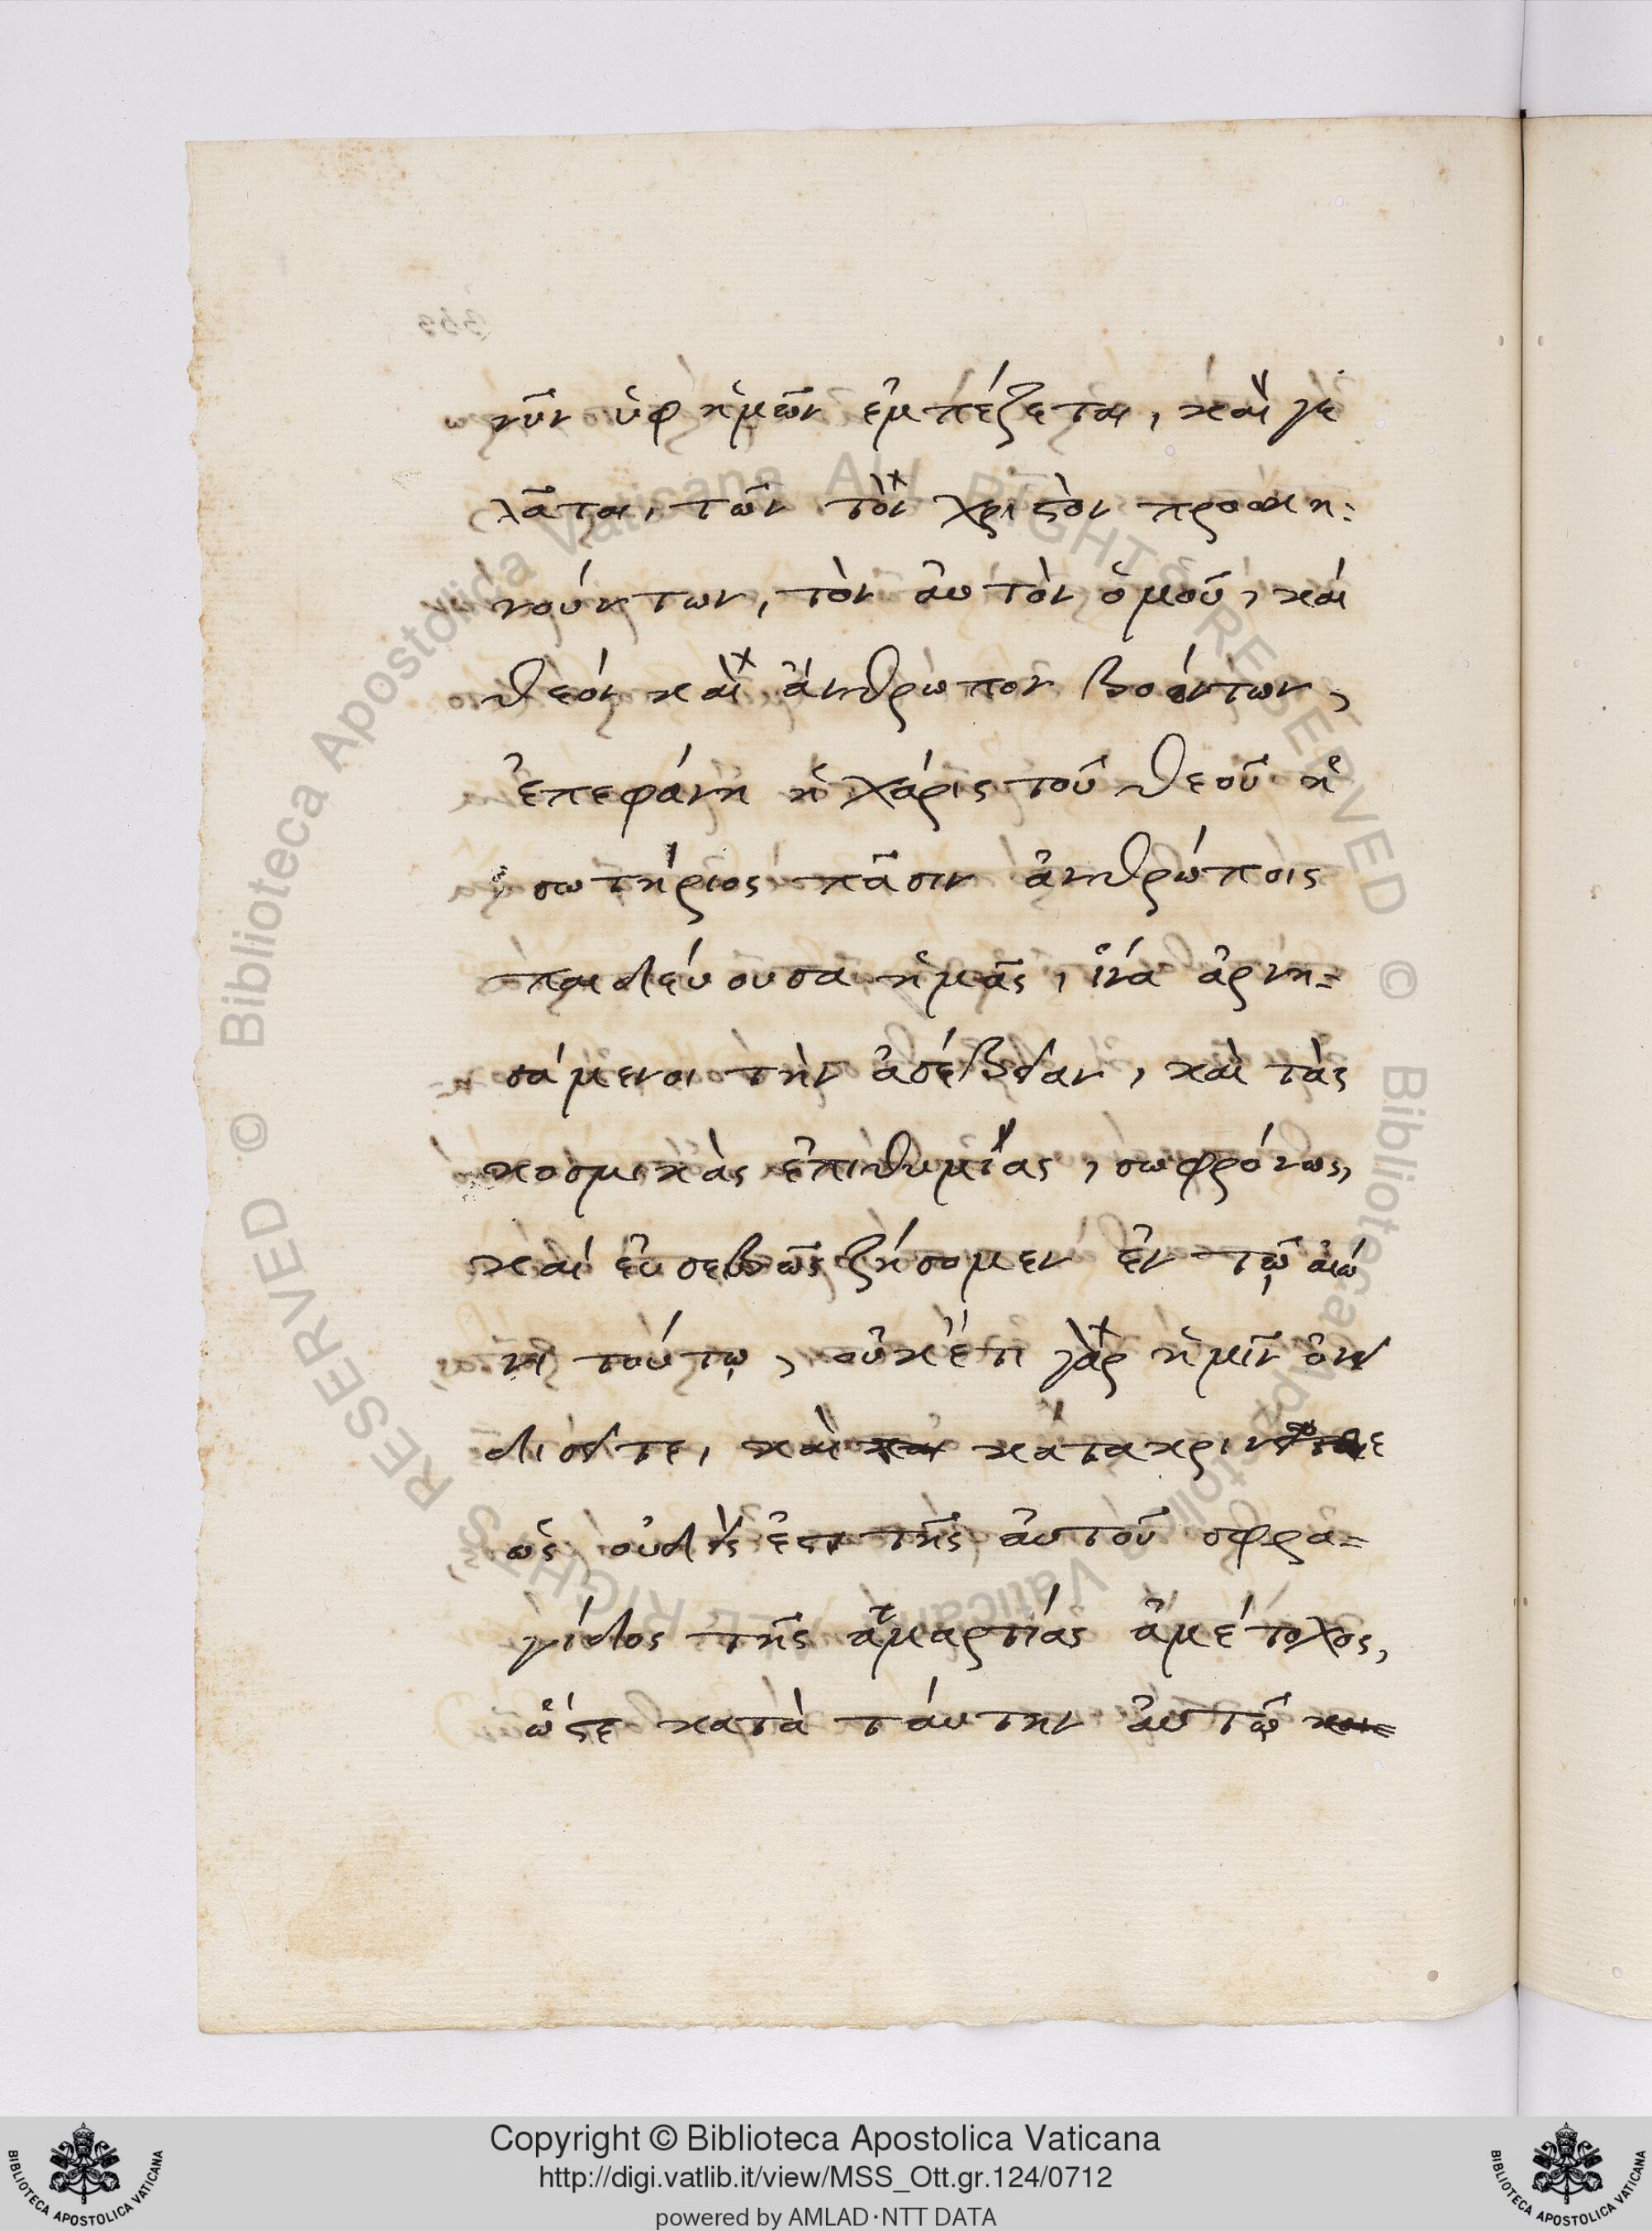 νῦν ὑφ ἡμῶν ἐμπέζεται, καὶ γε
λᾶται, τῶν τὸν χριστὸν προσκη:
νούντων, τὸν αὐτὸν ὁμοῦ, καί
θεόν καὶ ἄνθρωπον βοόντων,
ἐπεφάνη ἡ χάρις τοῦ θεοῦ ἡ
σωτήριος πᾶσιν ἀνθρώποις
παιδεύουσα ἡμᾶς, ἵνα ἀρνη=
σάμενοι τὴν ἀσέβειαν, καὶ τὰς
κοσμικὰς ἐπιθυμίας, σωφρόνως,
καί εὐσεβῶς ζήσομεν ἐν τῷ αἰώ
νι τούτῳ, οὐκέτι γὰρ ἡμῖν ὀνεί
διεῖτε, καὶ
ὡς οὐδεὶς ἐστι τῆς αὐτοῦ σφρα=
γίδος τῆς ἁμαρτίας ἀμέτοχος,
ὥστε κατὰ ταύτην αὐτῷ
Copyright © Biblioteca Apostolica Vaticana
http://digi.vatlib.it/view/MSS_Ott.gr.124/0712
powered by AMLAD·NTT DATA
BIBLIOTECA APOSTOLICA VATICANA
BIBLIOTECA APOSTOLICA VATICANA
© Biblioteca Apostolica Vaticana ALL RIGHTS RESERVED
© Biblioteca Apostolica Vaticana ALL RIGHTS RESERVED